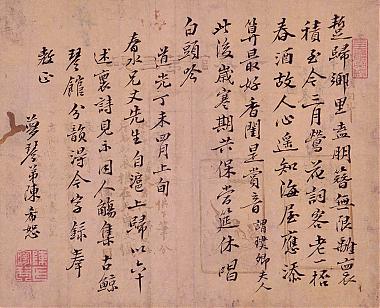 暫歸鄉里盍朋簪無限離裏
積至今三月鶯花詞客老一桮
春酒故人心遙知海屋應添
算最好香閨是賞音謂暎卿夫人
此後歲寒期共保當筵休唱
白頭吟
道光丁未四月上旬
春水兄丈先生自滬上歸以六十
述裏詩見示因人觴集古鯨
琴館分韻得今字録奉
教正
夢琴弟陳希恕